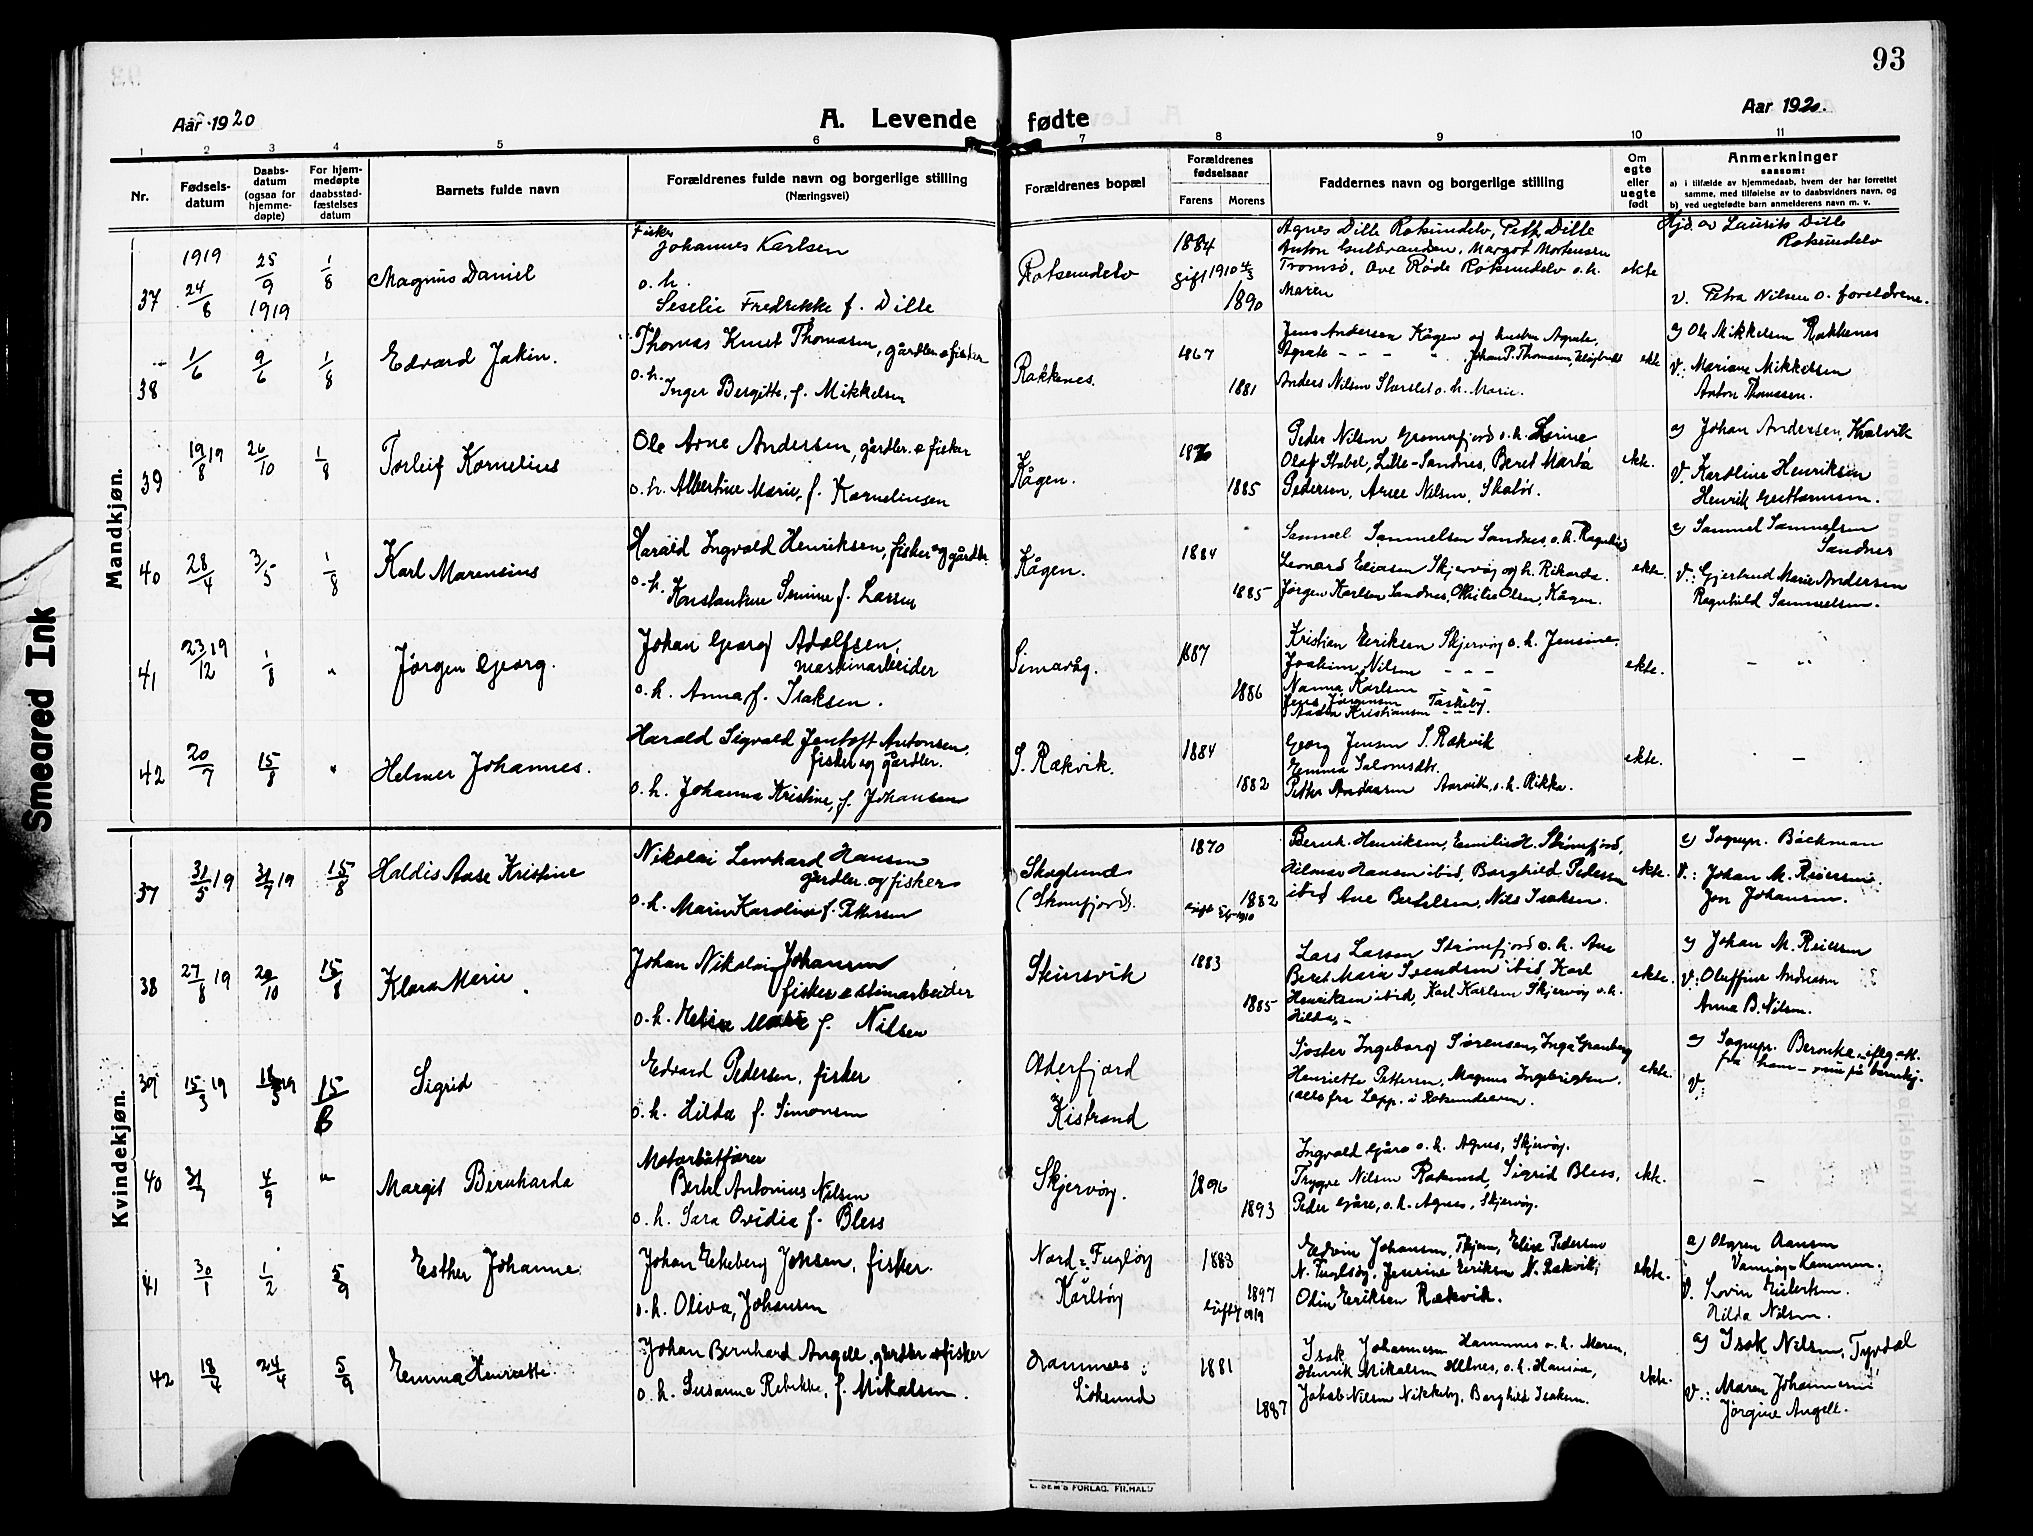 93
Aar 1920
A. Levende fødte
Aar 1920.
1 2 3 4 5 6 7 8 9 10 11
Nr.
Fødsels-
datum
Daabs-
datum
(ogsaa for
hjemme-
døpte)
For hjem-
medøpte
daabsstad-
fæstelses
datum
Barnets fulde navn
Forældrenes fulde navn og borgerlige stilling
(Næringsvei)
Forældrenes bopæl
Forældrenes
fødselsaar
Farens Morens
Faddernes navn og borgerlige stilling
Om
egte
eller
uegte
født
Anmerkninger
saasom:
a) i tilfælde av hjemmedaab, hvem der har forrettet
samme, med tilføielse av to daabsvidners navn, og
b) ved uegtefødte barn anmelderens navn m. v.
Smeared Ink
Mandkjøn.
37
1919
24/6
25/9
1919
1/8
Magnus Daniel
Fisker
Johannes Karlsen
o. h.
Seselie Fredrikke f. Dille
Rotsundelv
1884
gift 1910 4/3
1890
Agnes Dille Rotsundelv, Petr. Dille
Anton Gulbrandsen, Margot Mortensen
Tromsø, Ove Røde Rotsundelv o. h.
Maren
ekte
Hjd. av Laurits Dille
Rotsundelv
v. Petra Nilsen o. foreldrene.
38
1/6
9/6
1/8
Edvard Jakin.
Thomas Knut Thomasen, gårdbr. & fisker
o. h.
Inger Bergitte, f. Mikkelsen
Rakkenes.
1867
1881
Jens Andersen Kågen og hustru Agnete,
Agnete - - - " Johan P. Thomasen,
Anders Nilsen o. h. Marie.
ekte
a) Ole Mikkelsen Rakkenes
V.: Mariane Mikkelsen
Anton Thomassen.
39
19/8 19
26/10
1/8
Torleif Kornelius
Ole Arne Andersen, gårdbr. & fisker
o. h. Albertine Marie, f. Kornelinsen
Kågen.
1876
1885
Peder Nilsen Grunnfjord o. h. Lorine
Olaf Stabel, Lille-Sandnes, Beret Marta
Pedersen, Arne Nilsen, Skalø.
ekte.
a) Johan Andersen, Kvalvik
V. Karoline Henriksen
Henrik Guttormsen.
40
28/4
3/5
1/8
Karl Marensius
Harald Ingvald Henriksen, fisker og gårdbr.
o. h. Konstantine Semine f. Lassen
Kågen.
1884
1885
Samuel Samuelsen Sandnes, o. h. Ragnhild
Leonard Eliasen Skjervøy og h. Rikarda.
Jørgen Karlsen Sandnes, Othilie Olsen, Kågen.
ekte.
a) Samuel Samuelsen
Sandnes
V.: Gjertrud Marie Andersen
Ragnhild Samuelsen.
41
23/12 19
1/8
"
Jørgen Georg.
Johan Georg Adolfsen,
maskinarbeider
o. h. Anna f. Isaksen.
Simavåg.
1887
1886
Kristian Eriksen Skjervøy o. h. Jensine.
Joakim Nilsen - - -
Nanna Karlsen - - -
Jens Jørgensen Taskeby.
Kristiansen - - -.
ekte.
- "
42
20/7
15/8
"
Helmer Johannes.
Harald Sigvald Jentoft Antonsen,
fisker og gårdbr.
o. h. Johanna Kristine, f. Johansen
S. Rækvik.
1884
1882
Georg Jensen S. Rækvik
Emma Salomsdtr.
Petter Andersen Aarvik, o. h. Rikka.
ekte.
-
Kvindekjøn.
37
31/5 19
31/7 19
15/8
Haldis Aase Kristine
Nikolai Lenhard Hansen
gårdbr. og fisker
o. h. Marie Karoline f. Pettersen
Skoglund
(Straumfjord).
1870
1882
gift 5/4 1910
Bernh. Henriksen, Emilie H. Strømfjord,
Hilmar Hansen ibid, Borghild Pedersen
ibid, Ane Bertelsen, Nils Isaksen.
ekte.
a) Sognepr. Bäckman
V.: Johan M. Reiersen
Jon Johansen.
38
27/8 19
20/10
15/8
Klara Marie
Johan Nikolai Johansen
fisker & steinarbeider
o. h. Elise Marie f. Nilsen
Skinsvik
1883
1885
Lars Larsen Strømfjord o. h. Ane
Beret Marie Svendsen ibid, Karl
Henriksen ibid, Karl Karlsen Skjervøy o. h.
Hilda, -
ekte.
a) Johan M. Reiersen
V. Oluffine Andreasen
Anna B. Nilsen.
39
15/3 19
18/5 19
15/8
Sigrid
Edvard Pedersen, fisker
o. h. Hilda f. Simonsen
Oderfjord
i
Kistrand
Søster Ingeborg Sørensen, Inga Granberg
Henriette Pettersen, Magnus Ingebrigtsen.
(alle fra Lapp. i Rotsundelven.
ekte.
a) Sogne pr. ifløg att.
fra ham - på barnehj.
V.
40
31/7
4/9
"
Margit Bernharda
Motorbåtfører
Bertel Antonius Nilsen
o. h. Sara Ovidia f. Bless
Skjervøy.
1896
1893
Ingvald Gjåre o. h. Agnes, Skjervøy.
Trygve Nilsen Rotsund, Sigrid Bless,
Peder Gjåre, o. h. Agnes, Skjervøy.
ekte.
-
41
30/1
1/2
5/9
Esther Johanne
Johan Ekeberg Jensen, fisker.
o. h. Oliva, Johansen
Nord-Fugløy
Karlsøy
1883
1897
gift 1919
Edvin Johansen, Elise Pedersen
N. Fugløy, Jensine Eriksen N. Rækvik,
Odin Eriksen Rækvik.
ekte.
a) Olgren Hansen
Vannøy-Kammen.
V. Lovin Eilertsen.
Hilda Nilsen.
42
18/4
24/4
5/9
Emma Henriette.
Johan Bernhard Angell, gårdbr. & fisker
o. h. Susanna Rebekka, f. Mikalsen.
Hamnes
Loksund
1881
1887
Isak Johannesen Hamnnes o. h. Maren,
Henrik Mikalsen Hellnes, o. h. Hansine,
Jakob Nilsen Nikkeby, Borghild Isaksen.
ekte.
a) Isak Nilsen, Tyvdal
V.: Maren Johannesen
Jørgine Angell.
E. SEM'S FORLAG. FR.HALD